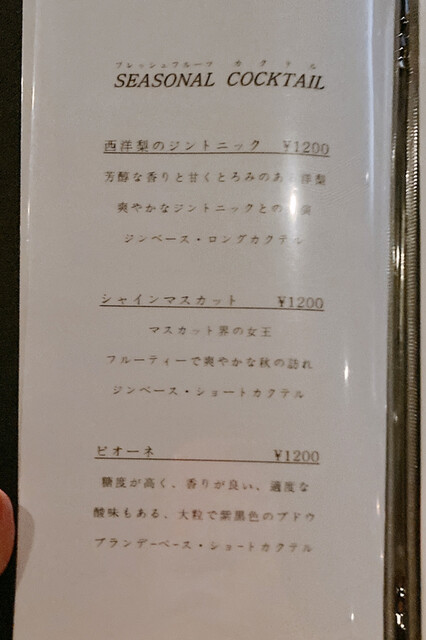 フレッシュフルーツ カクテル
SEASONAL COCKTAIL
西洋梨のジントニック ¥1200
芳醇な香りと甘くとろみのあ 洋梨
爽やかなジントニックとの
ジンベース・ロングカクテル
シャインマスカット ¥1200
マスカット界の女王
フルーティーで爽やかな秋の訪れ
ジンベース・ショートカクテル
ピオーネ ¥1200
糖度が高く、香りが良い、適度な
酸味もある、大粒で紫黒色のブドウ
ブランデーベース・ショートカクテル